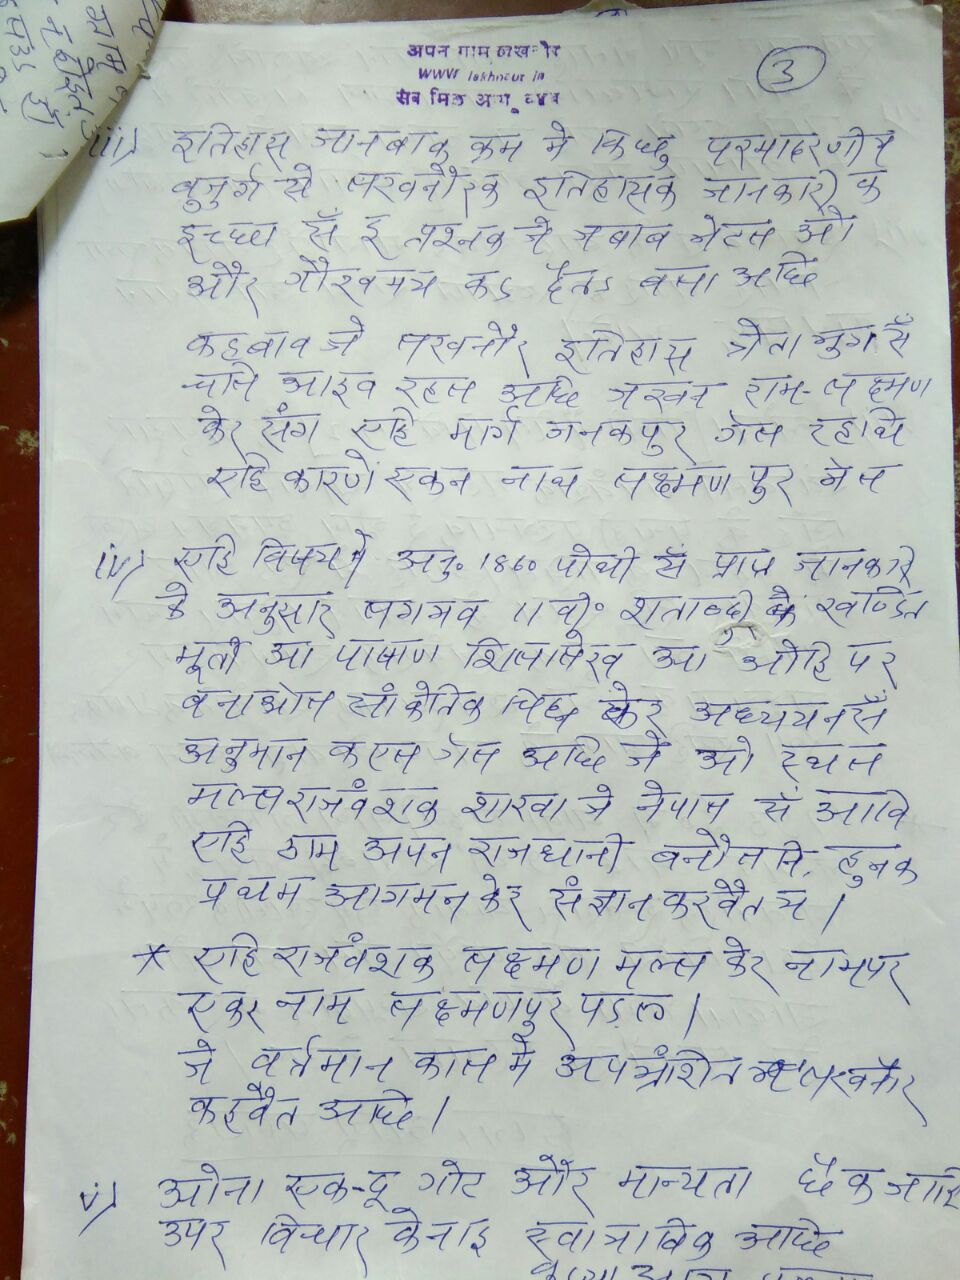 अपन गाम लखनौर
www lakhnaur.in
सब मिल आगू बढब
3
iii) इतिहास जानबाक क्रम मे किछु परमादरणीय
बुजुर्ग से लखनौरक इतिहासक जानकारी क
इच्छा सँ ई प्रश्नक जे जबाब भेटल ओ
और गौरवमय कऽ दैतऽ बला अछि
कहबाव जे लखनौर इतिहास त्रेता युग सँ
चलि आइब रहल अछि जखन राम-लक्ष्मण
केर संग एहि मार्ग जनकपुर गेल रहथि
एहि कारणे एकर नाम लक्ष्मण पुर भेल
iv) एहि विषय मे अनु० 1860 पोथी सँ प्राप्त जानकारी
के अनुसार लगभग 11वी० शताब्दी के खण्डित
मूर्ती आ पाषाण शिलालेख आ ओहि पर
बनाओल सांकेतिक चिह्न केर अध्ययन सँ
अनुमान कएल गेल अछि जे ओ स्थल
मल्ल राजवंशक शाखा जे नेपाल सँ आबि
एहि ग्राम अपन राजधानी बनौलनि, हुनक
प्रथम आगमन केर संज्ञान करबैत य।
* एहि राजवंशक लक्ष्मण मल्ल केर नामपर
एकर नाम लक्ष्मणपुर पड़ल।
जे वर्तमान काल मे अपभ्रंशित लखनौर
कहबैत अछि।
v) ओना एक-दू गोट और मान्यता छैक जाहि
उपर विचार केनाइ स्वाभाविक अछि